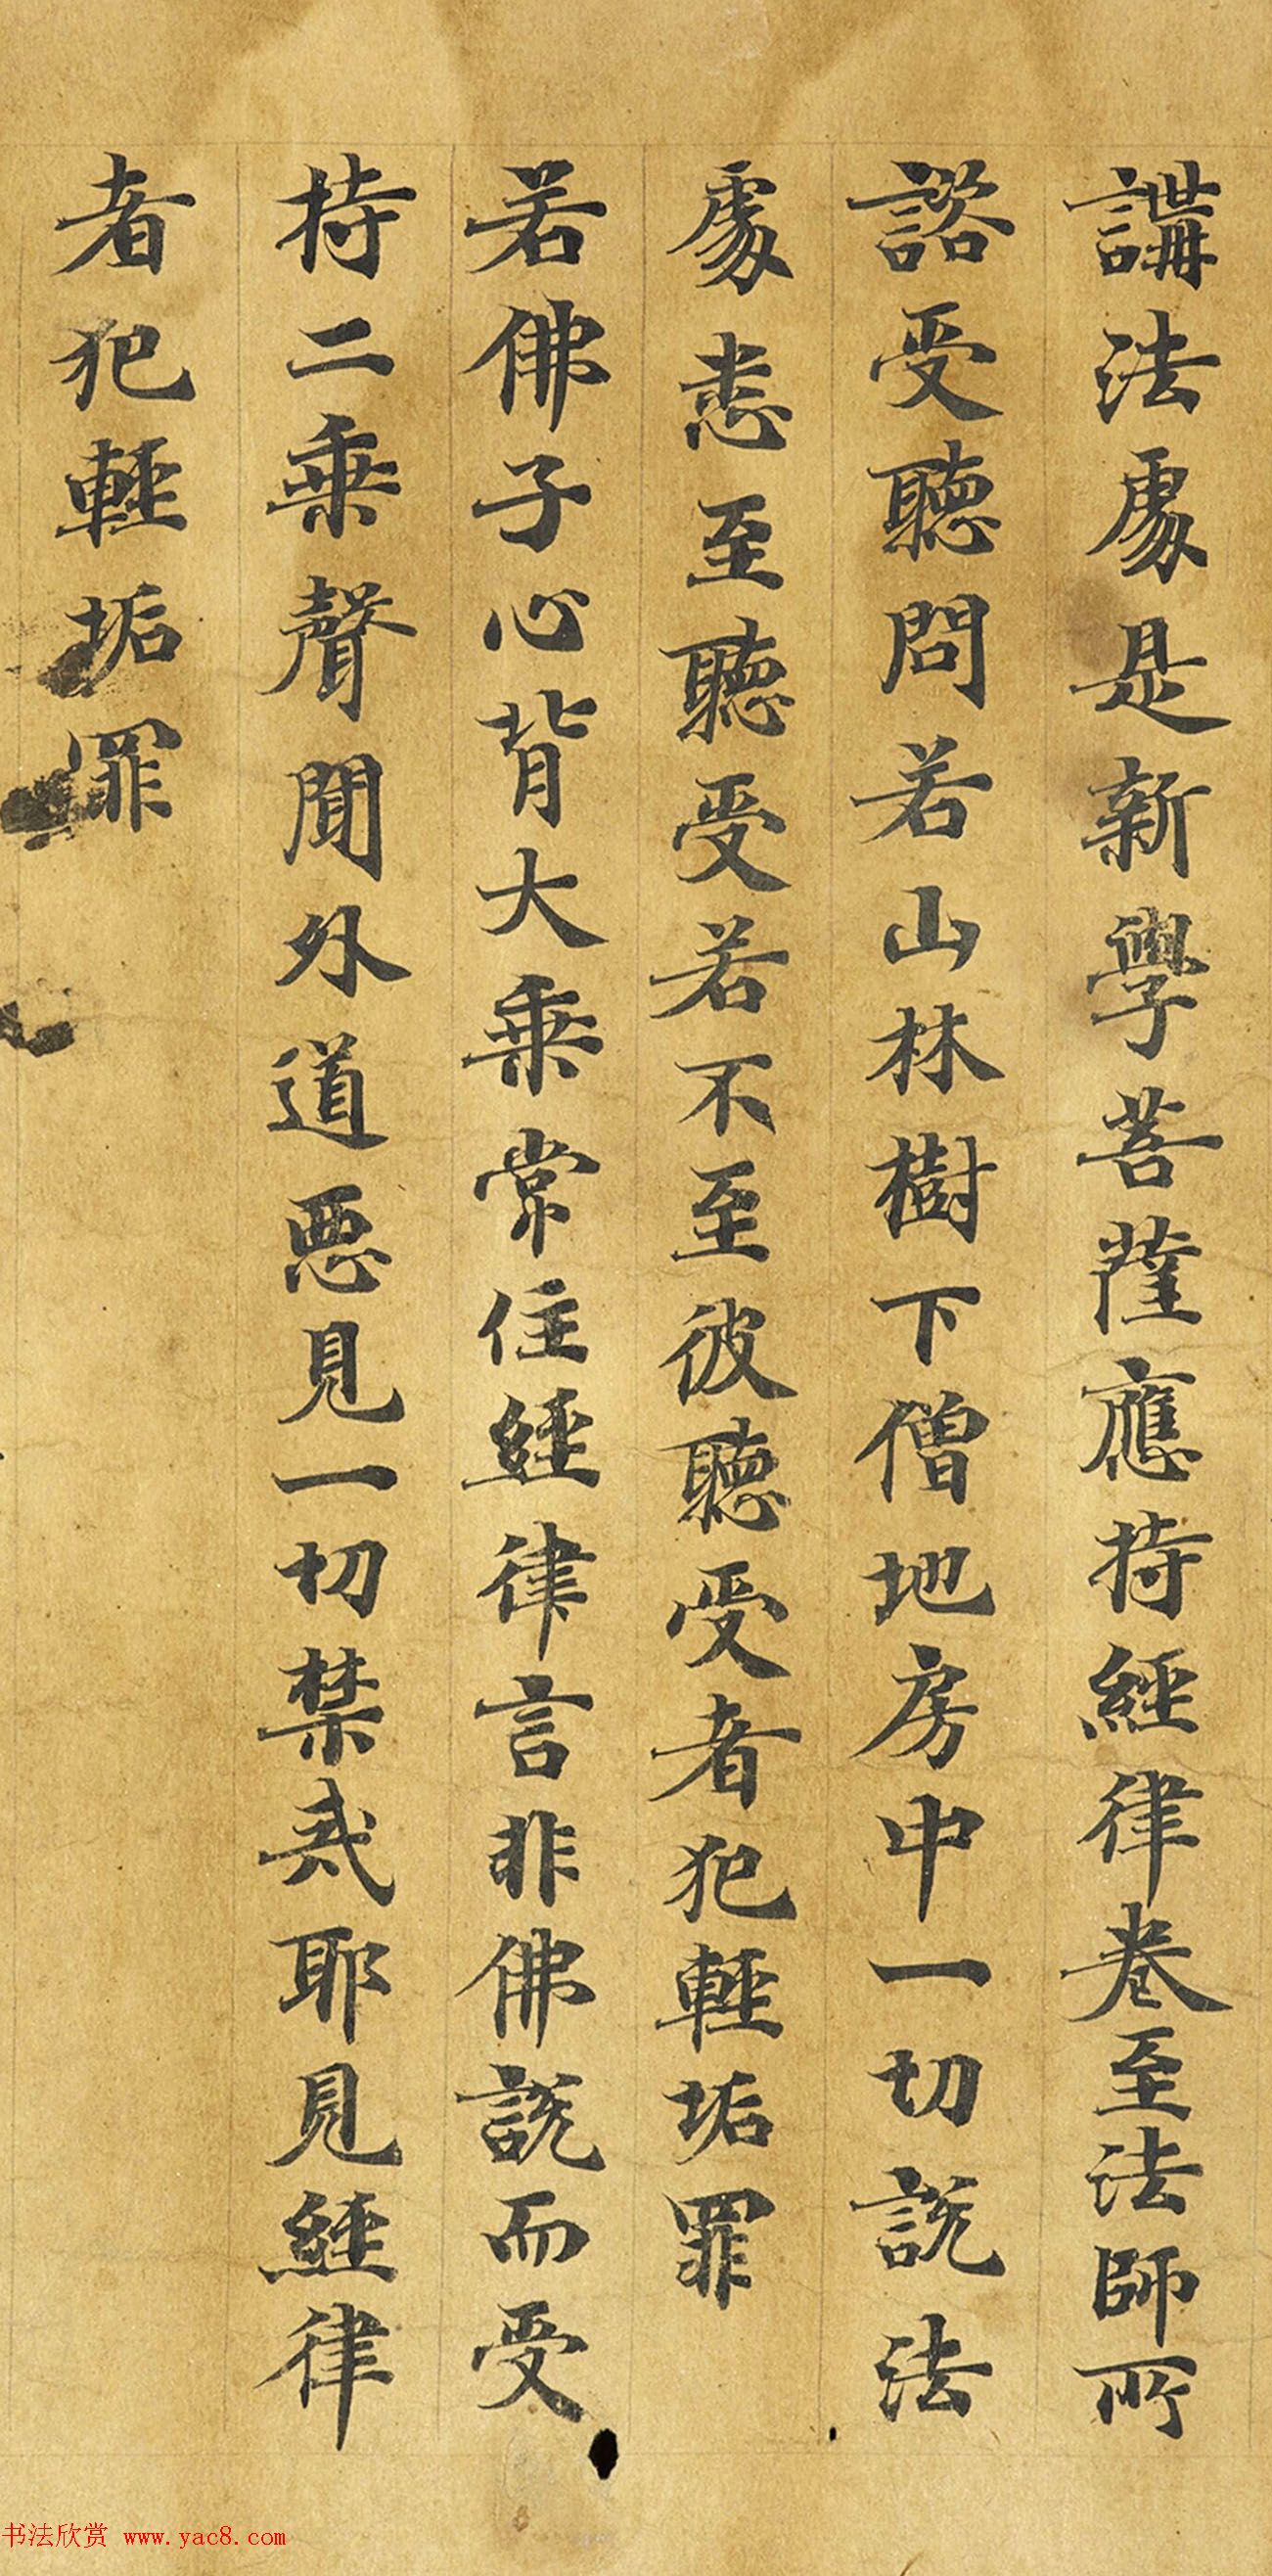 講法處是新學菩薩應持經律卷至法師所
諮受聽問若山林樹下僧地房中一切說法
處悉至聽受若不至彼聽受者犯輕垢罪
若佛子心背大乘常住經律言非佛說而受
持二乘聲聞外道惡見一切禁戒耶見經律
者犯輕垢罪
书法欣赏 www.yac8.com